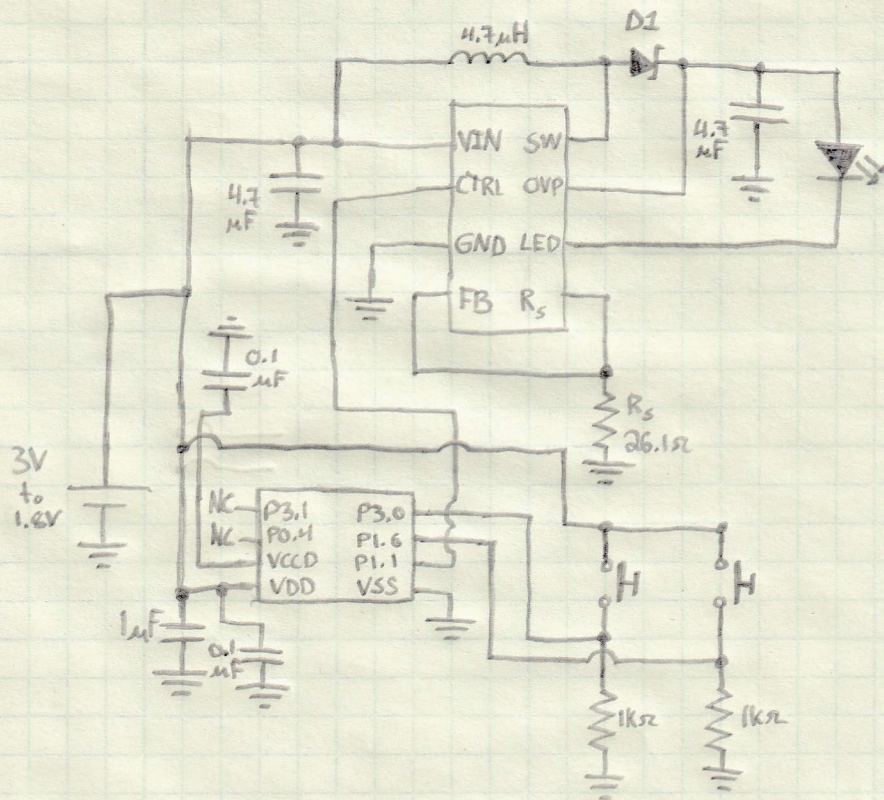 4.7µH
D1
VIN SW
CTRL OVP
GND LED
FB Rs
4.7
µF
4.7
µF
0.1
µF
Rs
26.1Ω
3V
to
1.8V
NC
NC
P3.1 P3.0
P0.4 P1.6
VCCD P1.1
VDD VSS
1µF
0.1
µF
1kΩ
1kΩ